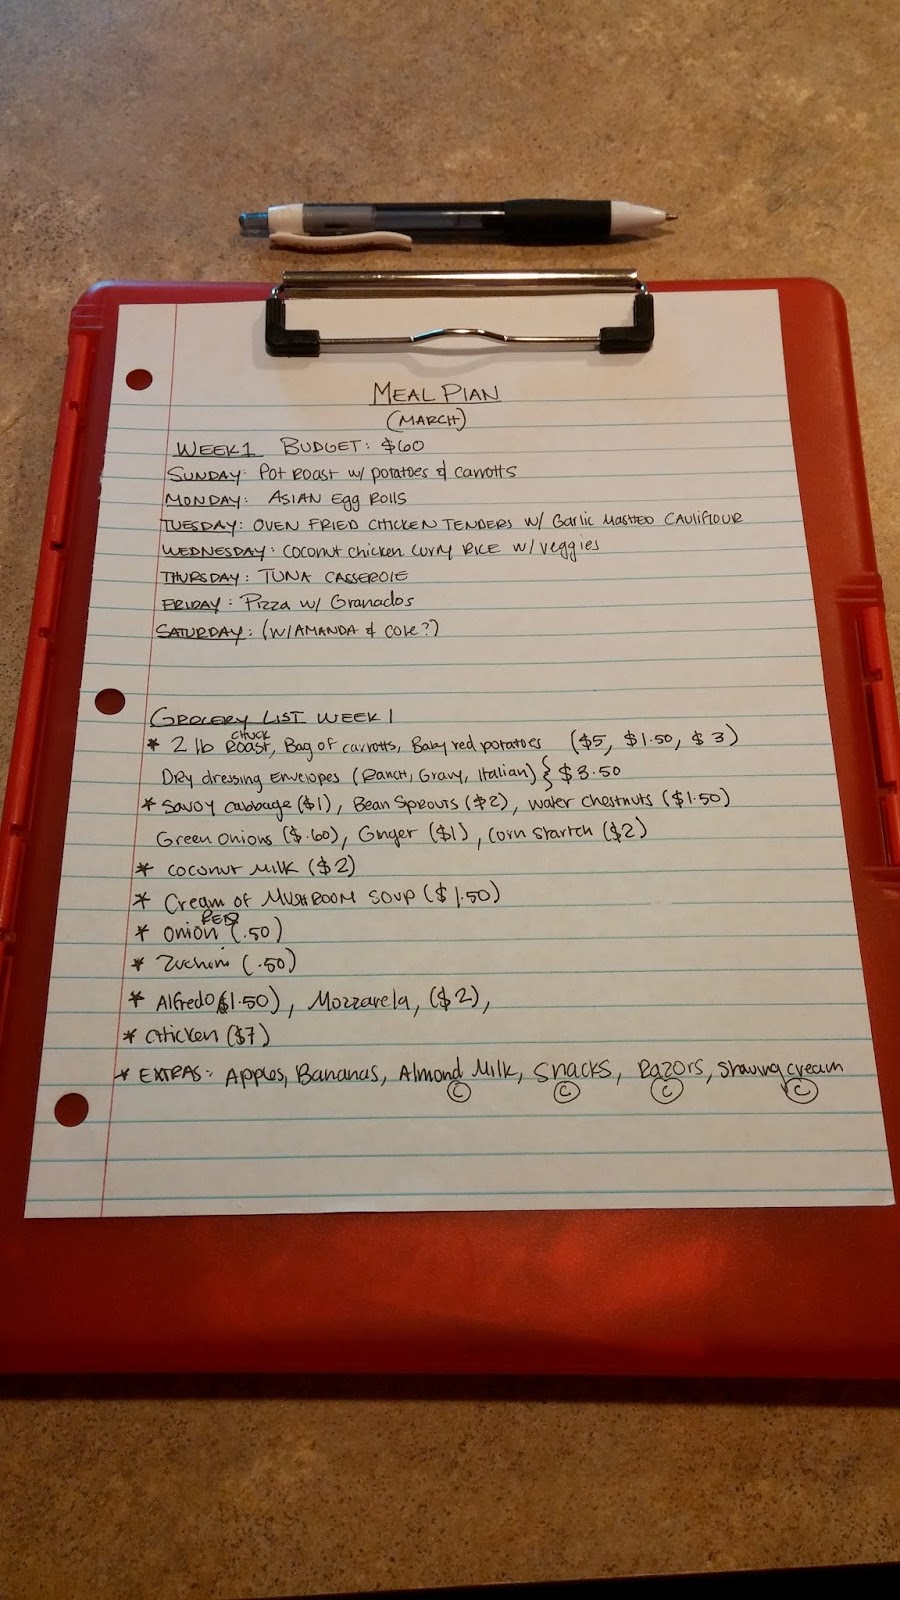 MEAL PLAN
(MARCH)
WEEK 1 BUDGET: $60
SUNDAY: POT ROAST W/ POTATOES & CARROTTS
MONDAY: ASIAN Egg ROLLS
TUESDAY: OVEN FRIED CHICKEN TENDERS W/ Garlic MASHED CAULIFLOUR
WEDNESDAY: COCONUT CHICKEN CURRY RICE W/ veggies
THURSDAY: TUNA CASSEROLE
FRIDAY: Pizza w/ Granados
SATURDAY: (W/AMANDA & COLE?)
GROCERY LIST WEEK 1
CHUCK
* 2 lb ROAST, Bag of carrotts, Baby red potatoes ($5, $1.50, $3)
Dry dressing Envelopes (Ranch, Gravy, Italian) } $3.50
* Savoy cabbage ($1), Bean Sprouts ($2), water chestnuts ($1.50)
Green Onions ($.60), Ginger ($1), corn startch ($2)
* coconut MILK ($2)
* Cream OF MUSHROOM SOUP ($1.50)
RED
* Onion (.50)
* Zuchini (.50)
* Alfredo ($1.50), Mozzarela, ($2),
* Chicken ($7)
* EXTRAS: Apples, Bananas, Almond Milk, Snacks, Razors, Shaving cream
C C C C